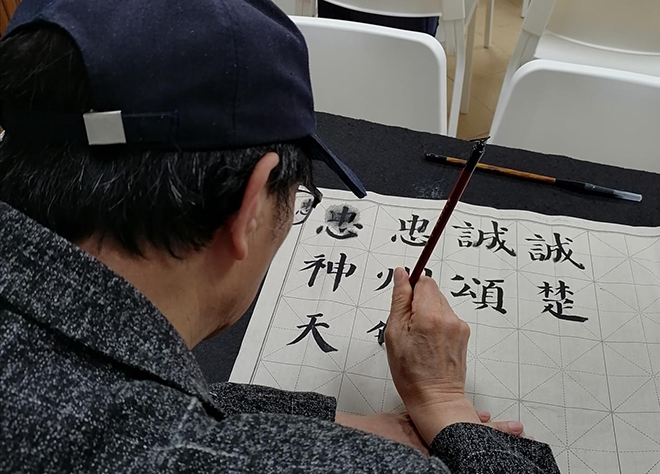 誠楚
誠頌
忠
忠神天
忠